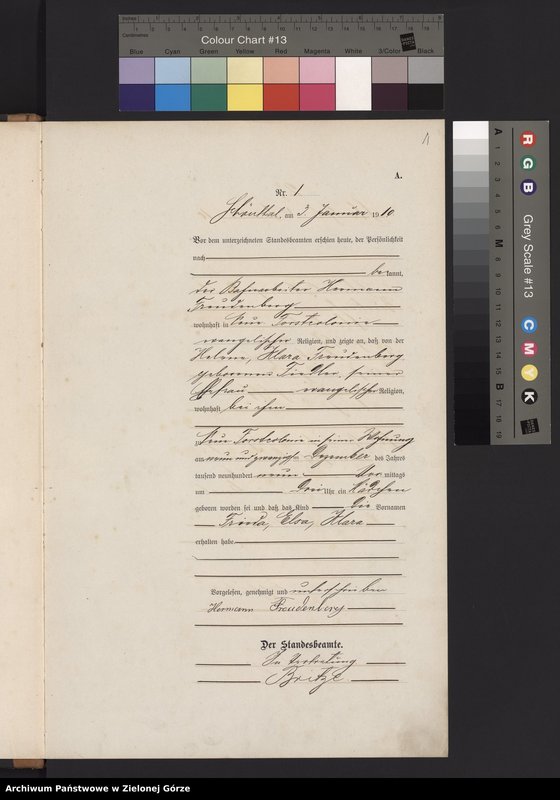 Inches
Centimetres
Colour Chart #13
Blue Cyan Green Yellow Red Magenta White 3/Color Black
Grey Scale #13
R G B C M Y K
A M B
1
A.
Nr. 1
am 3. Januar 1910
Vor dem unterzeichneten Standesbeamten erschien heute, der Persönlichkeit
nach
be kannt,
der Bahnarbeiter Hermann
Freudenberg
wohnhaft in Neue Forstcolonie
evangelischer Religion, und zeigte an, daß von der
Helene, Klara Freudenberg
geborenen Fiedler, seiner
Ehefrau evangelischer Religion,
wohnhaft bei ihm
zu Neue Forstcolonie in seiner Wohnung
am neun und zwanzigsten Dezember des Jahres
tausend neunhundert neun Vor mittags
um drei Uhr ein Mädchen
geboren worden sei und daß das Kind die Vornamen
Frieda, Elsa, Klara
erhalten habe.
Vorgelesen, genehmigt und unterschrieben
Hermann Freudenberg
Der Standesbeamte.
In Vertretung
Archiwum Państwowe w Zielonej Górze